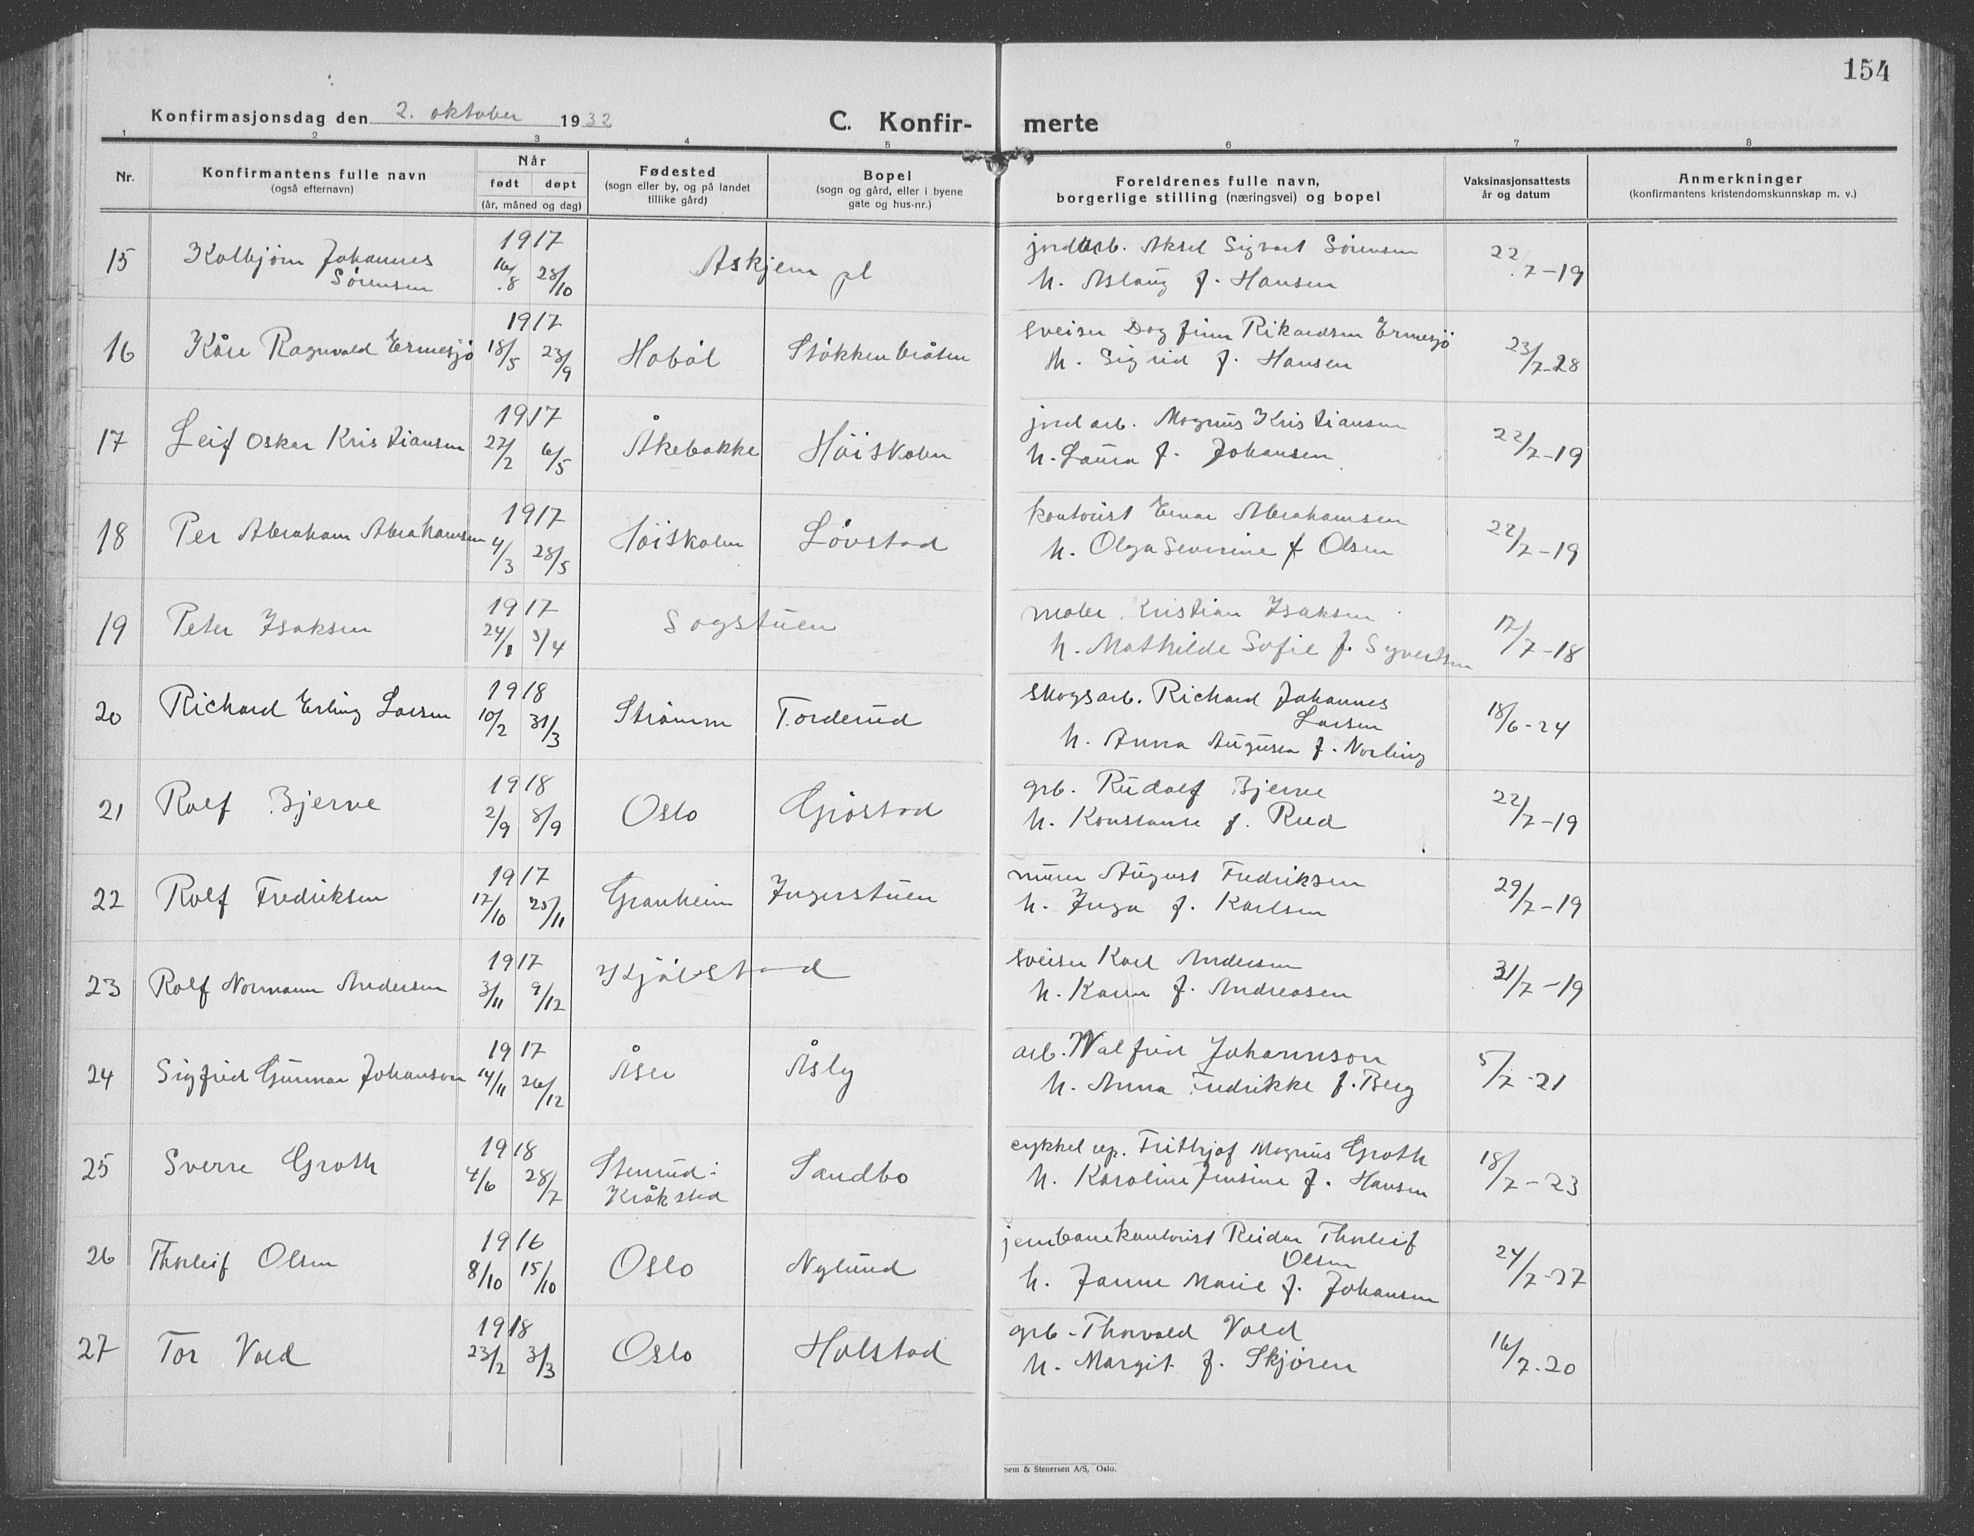 154
Konfirmasjonsdag den 2. oktober 1932
C. Konfir- merte
1 2 3 4 5 6 7 8
Nr. Konfirmantens fulle navn (også efternavn) Når født døpt (år, måned og dag) Fødested (sogn eller by, og på landet tillike gård) Bopel (sogn og gård, eller i byene gate og hus-nr.) Foreldrenes fulle navn, borgerlige stilling (næringsvei) og bopel Vaksinasjonsattests år og datum Anmerkninger (konfirmantens kristendomskunnskap m. v.)
15 Kolbjørn Johannes Sørensen 1917 16/8 28/10 Askjem pl jordarb. Aksel Sigvart Sørensen
h. Aslaug f. Hansen 22/7-19
16 Kåre Ragnvald Ermesjø 1917 18/5 23/9 Hobøl Støkkenbråten sveiser Dag Finn Rikardsen Ermesjö
h. Sigrid f. Hansen 23/7-28
17 Leif Oskar Kristiansen 1917 22/2 6/5 Åkebakke Höiskolen jordarb. Magnus Kristiansen
h. Laura f. Johansen 22/7-19
18 Per Abraham Abrahamsen 1917 4/3 28/5 Höiskolen Løvstad kontorist Einar Abrahamsen
h. Olga Severine f Olsen 22/7-19
19 Peter Isaksen 1917 24/1 5/4 Sogstuen maler Kristian Isaksen
h. Mathilde Sofie f. Syvertsen 17/7-18
20 Richard Erling Larsen 1918 10/2 31/3 Strömm Torderud skogsarb. Richard Johannes Larsen
h. Anna Augusta f. Norling 18/6-24
21 Rolf Bjerve 1918 2/9 8/9 Oslo Grøstad grb. Rudolf Bjerve
h. Konstanse f. Rud 22/7-19
22 Rolf Fredriksen 1917 12/10 25/11 Granheim Ingerstuen murer August Fredriksen
h. Inga f. Karlsen 29/7-19
23 Rolf Normann Andersen 1917 3/11 9/12 Kjølstad sveiser Karl Andersen
h. Karen f. Andreasen 31/7-19
24 Sigfred Gunnar Johanson 1917 14/11 26/12 Åser Åsly arb. Walfrid Johannson
h. Anna Fredrikke f. Berg 5/7-21
25 Sverre Groth 1918 4/6 28/7 Stenrud i Kråkstad Sandbo cykkelrep. Frithjof Magnus Groth
h. Karoline Jensine f. Hansen 18/7-23
26 Thorleif Olsen 1916 8/10 15/10 Oslo Nylund jernbanekontorist Reidar Thorleif Olsen
h. Janne Marie f. Johansen 24/7-27
27 Tor Vold 1918 23/2 3/3 Oslo Holstad grb. Thorvald Vold
h. Margit f. Skjøren 16/7-20
Sem & Stenersen A/S, Oslo.